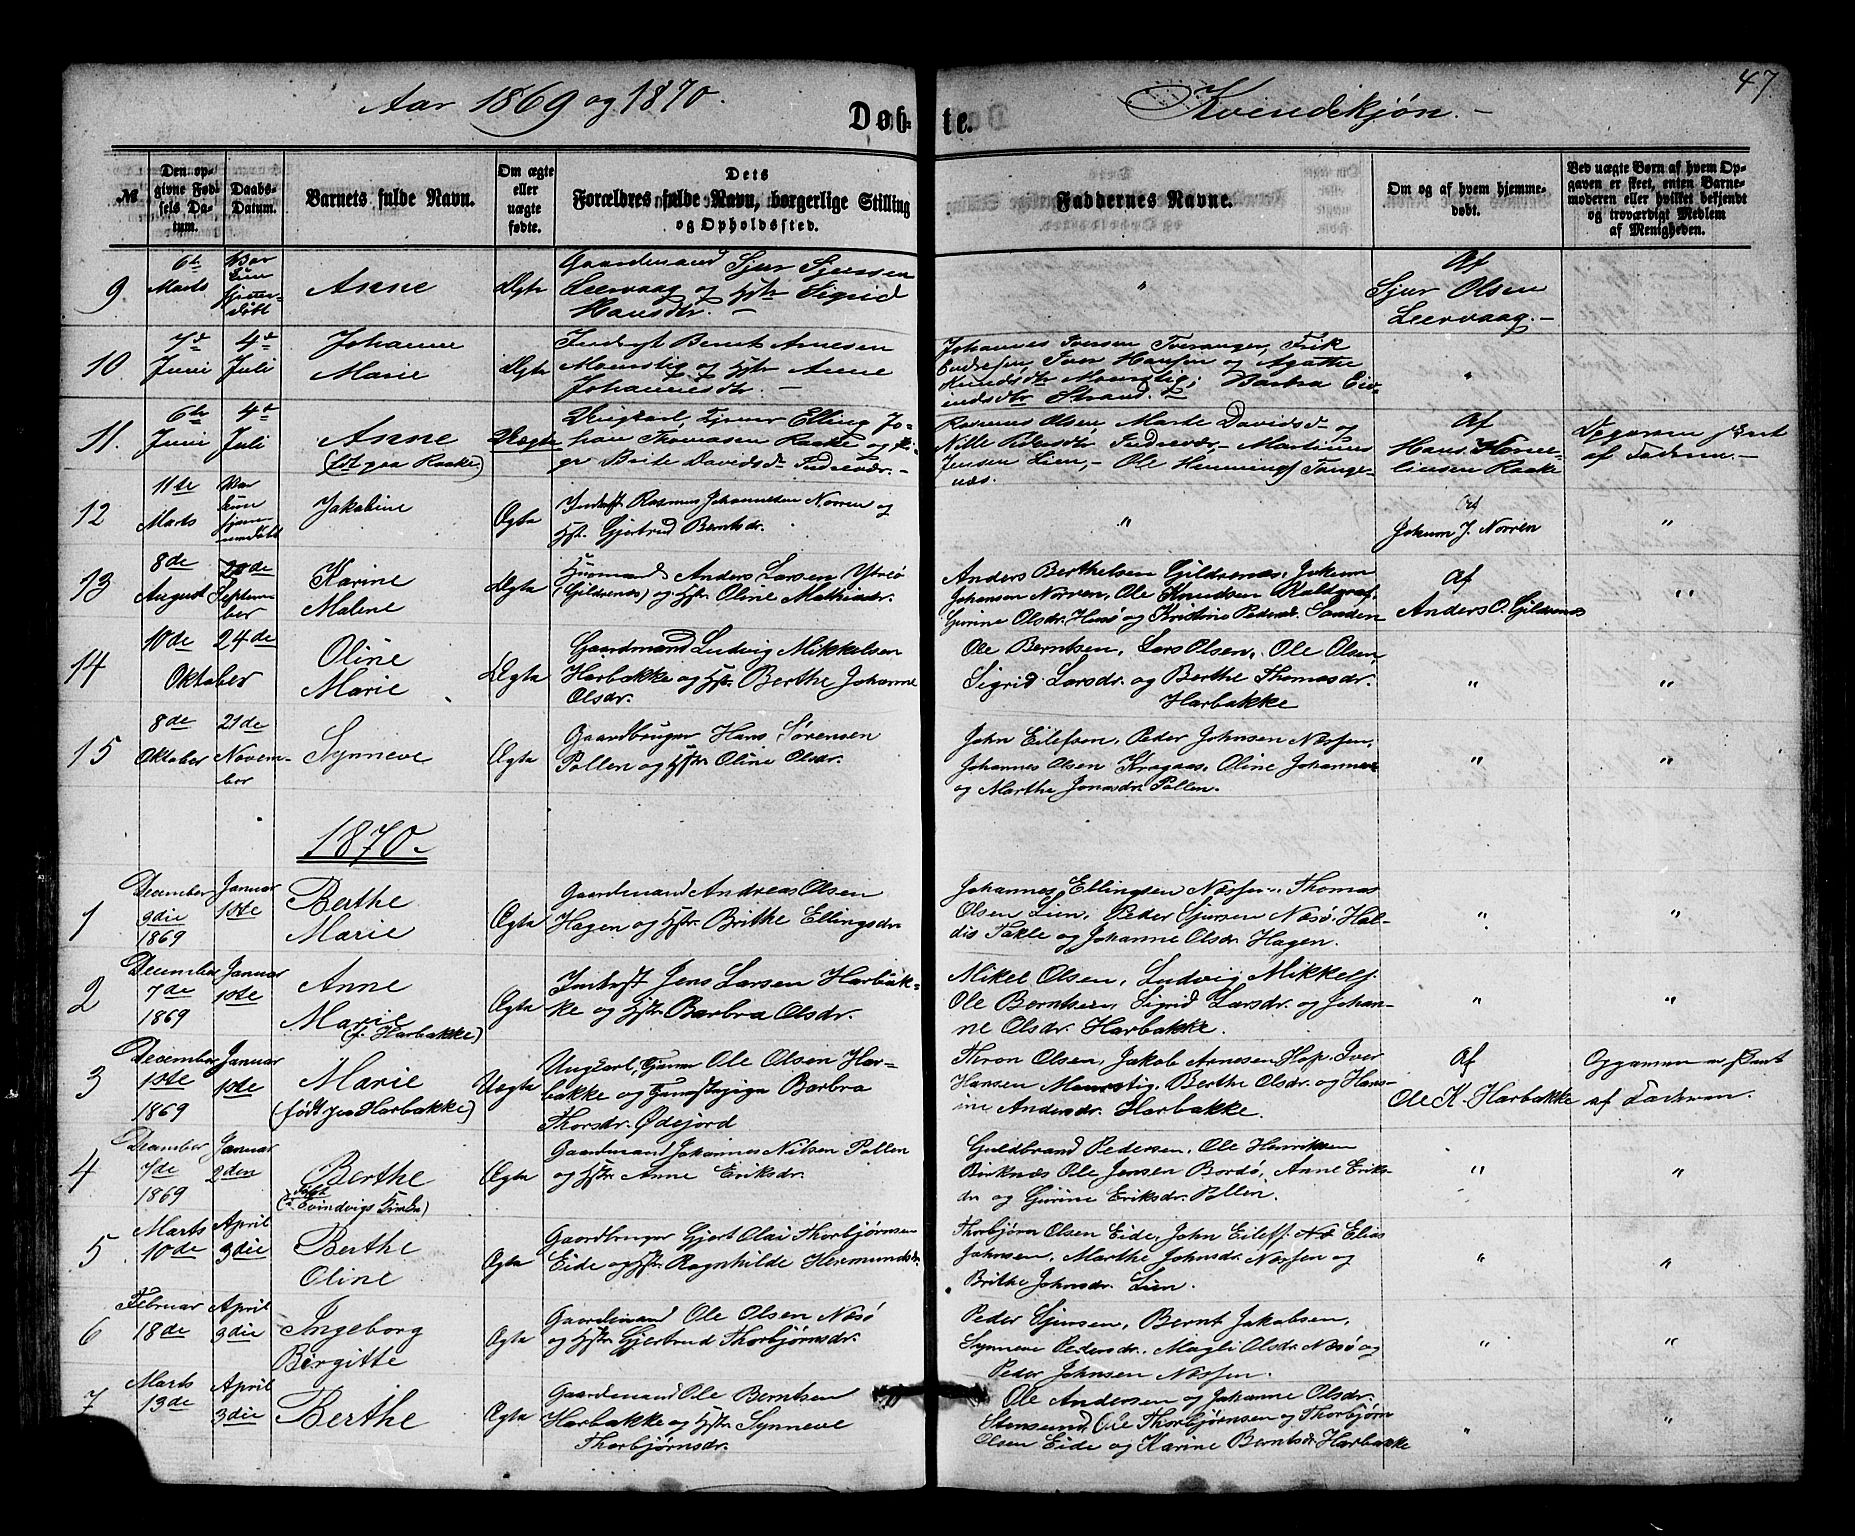 Aar 1869 og 1870.
Døb-te.
Kvindekjøn.
47
№
Den op-
givne Fød-
sels Da-
tum.
Daabs-
Datum.
Barnets fulde Navn.
Om ægte
eller
uægte
fødte.
Dets
Forældres fulde Navn, borgerlige Stilling
og Opholdssted.
Faddernes Navne.
Om og af hvem hjemme-
døbt.
Ved uægte Børn af hvem Op-
gaven er skeet, enten Barne-
moderen eller hvilket bekjendt
og troværdigt Medlem
af Menigheden.
9
6te
Marts
Anne
Ægte
Gaardmand Sjur Sjursen
Leervaag og Hstr Sigrid
Hansdtr.
"
Af
Sjur Olsen
Leervaag.
10.
Juni
4de
Juli
Johanne
Marie
Ægte
Inderst Bernt Arnesen
og Hstr Anne
Johannesdtr.
Johannes Iversen Tveranger,
Iver Hansen og Agathe
"
11.
6te
Juni
4de
Juli
Anne
(født paa Raake)
Uægte
Ungkarl, Elling
Thomasen Raake og
Brite Davidsdr Indrevær.
Rasmus Olsen Marte Davidsdr og
Indrevær, Martinus
Jensen Lien, Ole Tange-
næs.
Af
Hans
Raake
af Faderen.
12
11te
Marts
Jakobine
Ægte
Inderst Rasmus Johannesen Norren og
Hstr. Gjertrud Berntsdr.
"
Af
Johan J. Norren
"
13
8de
August
Septem-
ber
Karine
Malene
Ægte
Huusmand Anders Larsen Ytreö
(Gildrenes) og Hstr Oline Mathiasdr.
Anders Berthelsen Gildrenes, Johan
Johansen Norren, Ole Knudsen
Gurine Olsdr. Husö og Kristine Pedersdr. Sanden
Af
Anders O. Gildrenes
"
14
10de
24de
Oktober
Oline
Marie
Ægte
Gaardmand Ludvig Mikkelsen
Harbakke og Hstr. Berthe Johanne
Olsdr.
Ole Berntsen, Lars Olsen, Ole Olsen,
Sigrid Larsdr. og Berthe Thomasdr.
Harbakke
"
"
15
8de
Oktober
21de
Novem-
ber
Synneve
Ægte
Gaardbruger Hans Sørensen
Pollen og Hstr. Oline Olsdr.
John Eilefsen, Peder Johnsen Næssen,
Johannes Olsen Kragaas, Oline
og Marthe Jonasdr. Pollen.
"
"
1870.
1
December
9die
1869
Januar
1ste
Berthe
Marie
Ægte
Gaardmand Andreas Olsen
Hagen og Hstr. Brithe Ellingsdr.
Johannes Ellingsen Næssen, Thomas
Olsen Lien, Peder Sjursen Næsö, Hal-
dis Takle og Johanne Olsdr. Hagen.
"
"
2
December
7de
1869
Januar
1ste
Anne
Marie
(f. Harbakke)
Ægte
Inderst Jens Larsen Harbak-
ke og Hstr. Barbra Olsdr.
Mikel Olsen, Ludvig Mikkels.
Ole Berntsen, Sigrid Larsdr. og Johan-
ne Olsdr. Harbakke.
"
"
3
December
1ste
1869
Januar
1ste
Marie
(født paa Harbakke)
Uægte
Ungkarl, Ole Olsen Har-
bakke og Barbra
Thorsdr. Ødejord
Thron Olsen, Jakob Arnesen Hop, Iver
Hansen Berthe Olsdr. og Hans-
ine Andersdr. Harbakke.
Af
Ole K. Harbakke
Opgaven er skeet
af Faderen.
4
December
7de
1869
Januar
2den
Berthe
(i Evindvigs Kirke)
Ægte
Gaardmand Johannes Nilsen Pollen
og Hstr. Anne Eriksdr.
Guldbrand Pedersen, Ole Henriksen
Birknæs Ole Jensen Bordö, Anne Eriks-
dr. og Gurine Eriksdr. Pollen.
"
"
5
Marts
10de
April
3die
Berthe
Oline
Ægte
Gaardbruger Gjert Olai Thorbjørnsen
Eide og Hstr. Ragnhilde Hermundsdr.
Thorbjörn Olsen Eide, John Eilefs. Elias
Johnsen, Marthe Johnsdr. Næssen og
Brithe Johnsdr. Lien.
"
"
6
Februar
18de
April
3die
Ingeborg
Birgitte
Ægte
Gaardmand Ole Olsen Næsö
og Hstr. Gjertrud Thorbjørnsdr.
Peder Sjursen, Bernt Jakobsen,
Synneve Pedersdr., Magli Olsdr. Næsö og
Peder Johnsen Næssen.
"
"
7
Marts
13de
April
3die
Berthe
Ægte
Gaardmand Ole Berntsen
Harbakke og Hstr. Synneve
Thorbjørnsdr.
Ole Andersen og Johanne Olsdr.
Stensund, Ole Thorbjørnsen og Thorbjörn
Olsen Eide og Karine Berntsdr. Harbakke
"
"